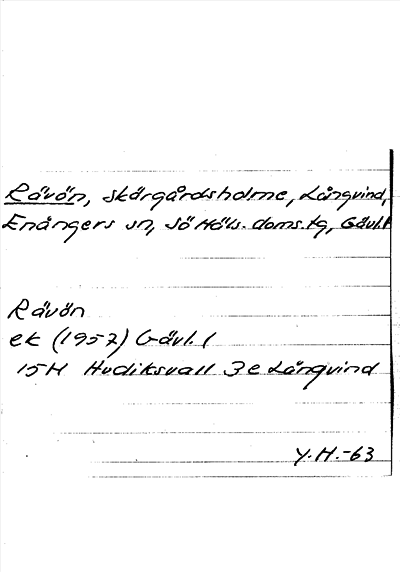 Rävön, skärgårdsholme, Långvind,
Enångers sn, Sö Häls. doms.tg, Gävl.l
Rävön
ek (1957) Gävl. l
15H Hudiksvall 3e Långvind
Y.H.-63